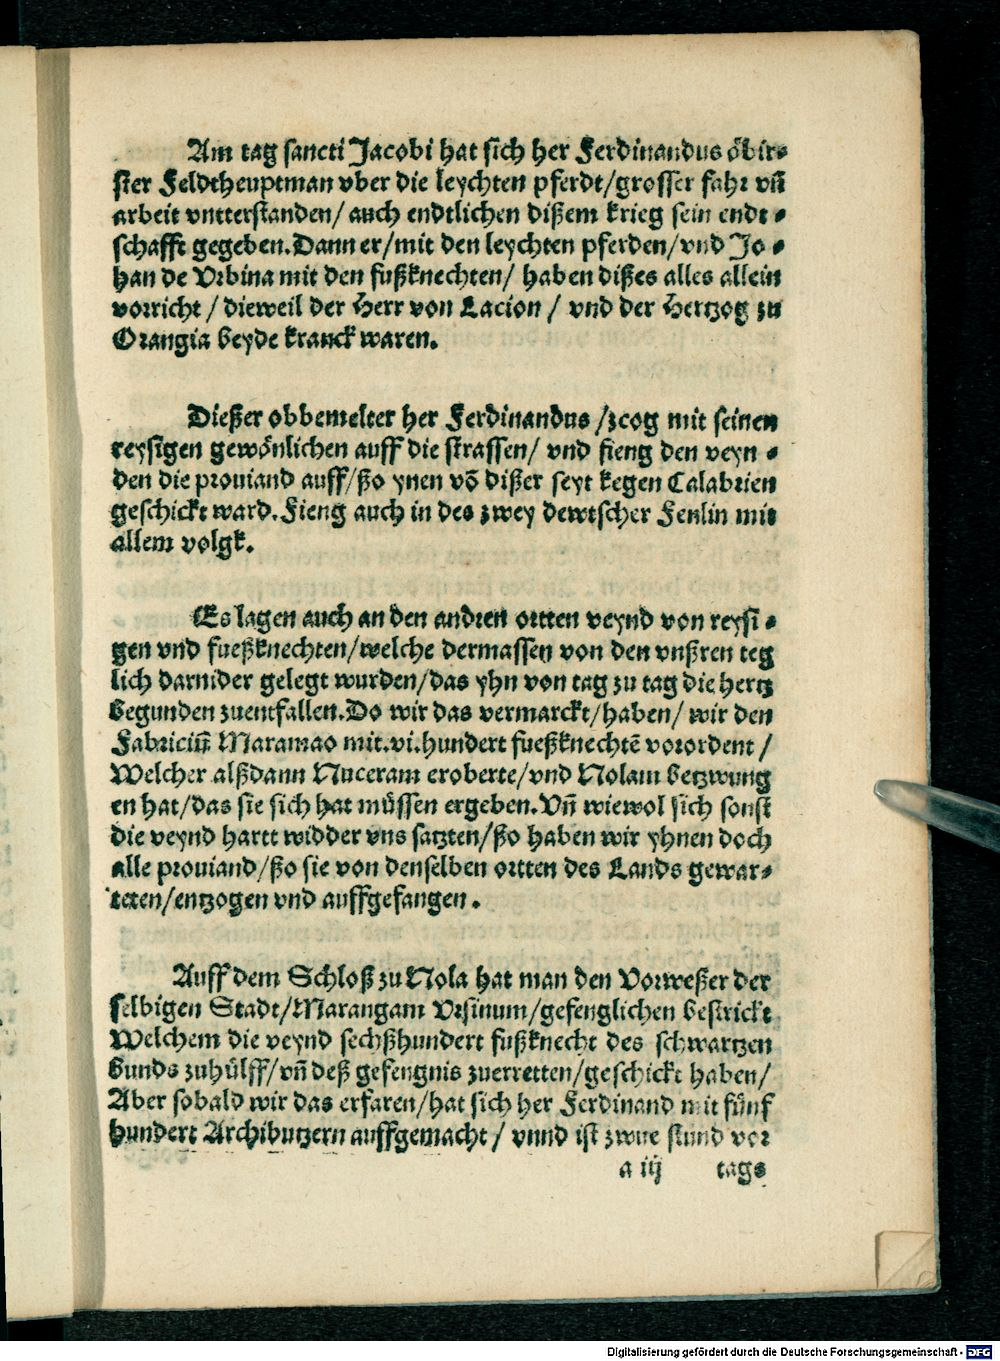 Am tag sancti Jacobi hat sich her Ferdinandus öbir⸗
ster Feldtheuptman vber die leychten pferdt/grosser fahr vn̄
arbeit vntterstanden/ auch endtlichen dißem krieg sein endt⸗
schafft gegeben. Dann er/mit den leychten pferden/vnd Jo⸗
han de Vrbina mit den fußknechten/ haben dißes alles allein
vorricht / dieweil der Herr von Lacion / vnd der Hertzog zu
Orangia beyde kranck waren.
Dießer obbemelter her Ferdinandus /zcog mit seinen
reysigen gewönlichen auff die strassen/ vnd fieng den veyn⸗
den die prouiand auff/ßo ynen vō dißer seyt kegen Calabrien
geschickt ward. Fieng auch in des zwey dewtscher Fenlin mit
allem volgk.
Es lagen auch an den andren ortten veynd von reysi⸗
gen vnd fueßknechten/welche dermassen von den vnßren teg
lich darnider gelegt wurden/das yhn von tag zu tag die hertz
begunden zuentfallen. Do wir das vermarckt/haben/ wir den
Fabriciū Maramao mit.vi.hundert fueßknechtē vorordent /
Welcher alßdann Nuceram eroberte/vnd Nolam betzwung
en hat/das sie sich hat müssen ergeben. Vn̄ wiewol sich sonst
die veynd hartt widder vns satzten/ßo haben wir yhnen doch
alle prouiand/ßo sie von denselben ortten des Lands gewar⸗
teten/entzogen vnd auffgefangen.
Auff dem Schloß zu Nola hat man den Vorweßer der
selbigen Stadt/Marangam Vrsinum/gefenglichen bestrickt
Welchem die veynd sechßhundert fußknecht des schwartzen
bunds zuhülff/vn̄ deß gefengnis zuerretten/geschickt haben/
Aber sobald wir das erfaren/hat sich her Ferdinand mit fünf
hundert Archibutzern auffgemacht / vnnd ist zwue stund vor
a iij tags
Digitalisierung gefördert durch die Deutsche Forschungsgemeinschaft - DFG